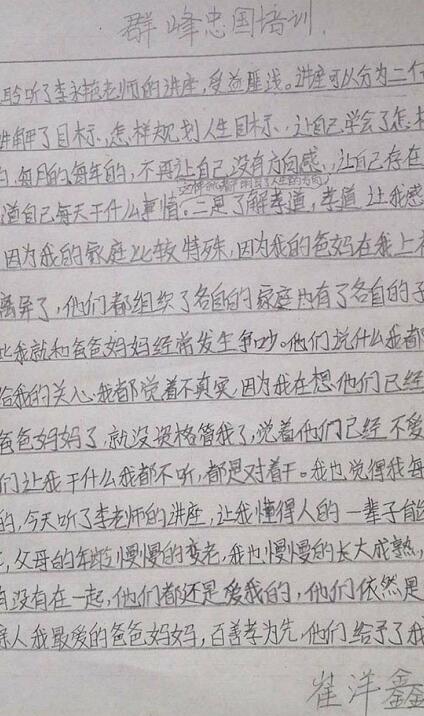 群峰忠国培训
聆听了李永艳老师的讲座,受益匪浅。讲座可以分为二个
讲解了目标、怎样规划人生目标、让自己学会了怎
的、每月的每年的,不再让自己没有方向感、让自己存在
这样就都明确了人生的方向
道自己每天干什么事情。二是了解孝道,孝道让我感
因为我的家庭比较特殊,因为我的爸妈在我上
离异了,他们都组织了各自的家庭内有了各自的子
此我就和爸爸妈妈经常发生争吵。他们说什么我都
给我的关心.我都觉着不真实,因为我在想他们已经
爸爸妈妈了.就没资格管我了,觉着他们已经不爱
们让我干什么我都不听,都是对着干。我也觉得我每
的,今天听了李老师的讲座,让我懂得人的一辈子能
,父母的年龄慢慢的变老,我也慢慢的长大成熟,
没有在一起,他们都还是爱我的,他们依然是
亲人我最爱的爸爸妈妈,百善孝为先.他们给予了我
崔洋鑫